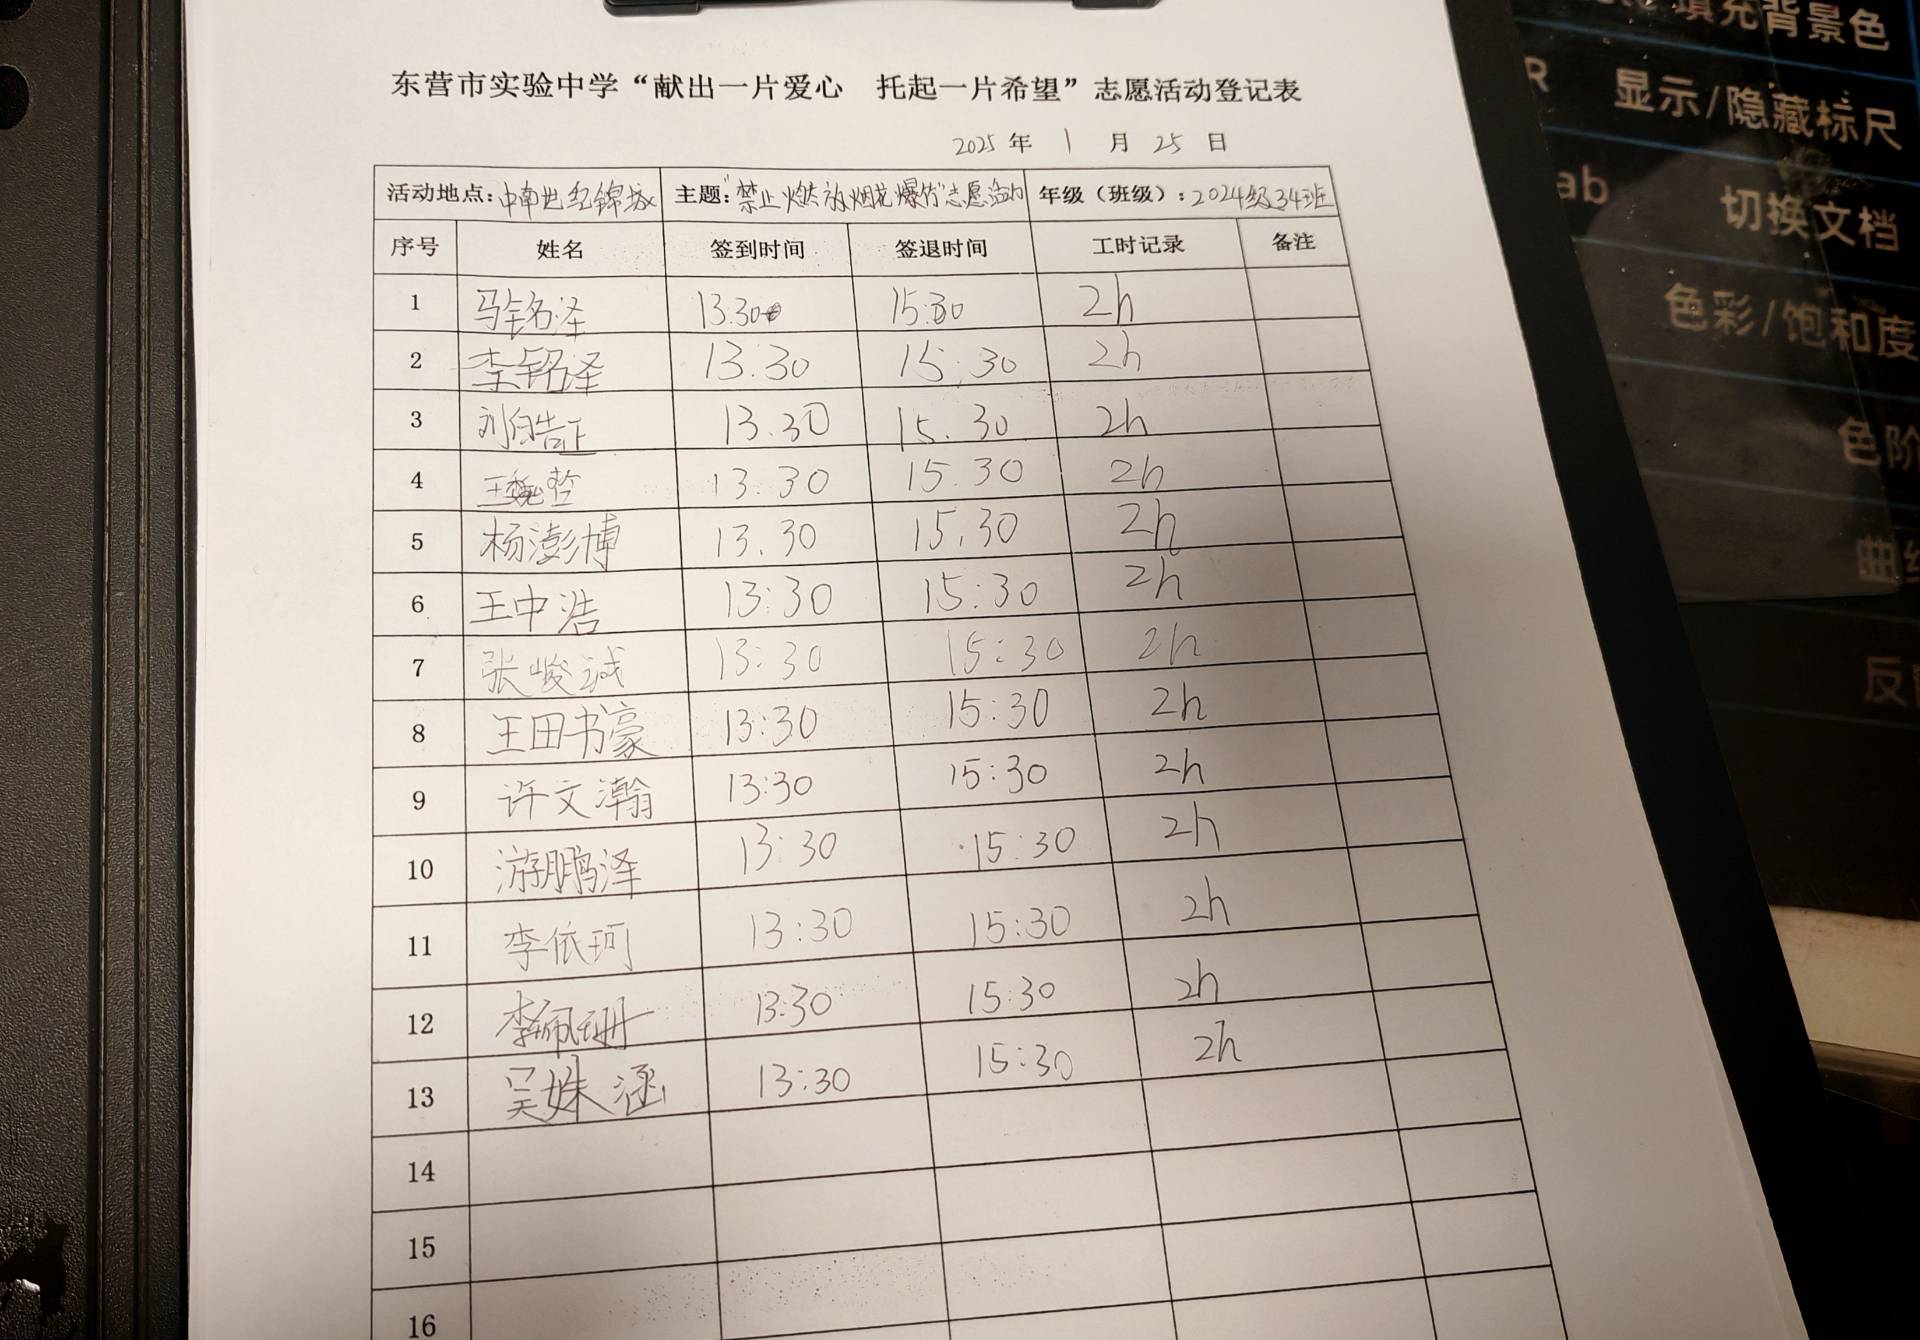 东营市实验中学“献出一片爱心 托起一片希望”志愿活动登记表
2025 年 1 月 25 日
活动地点:中南世纪锦城 主题:“禁止燃放烟花爆竹”志愿活动 年级（班级）:2024级34班
序号 姓名 签到时间 签退时间 工时记录 备注
1 马铭泽 13:30 15:30 2h
2 李铭泽 13:30 15:30 2h
3 刘白告正 13.30 15.30 2h
4 王魏哲 13.30 15 30 2h
5 杨澎博 13.30 15.30 2h
6 王中浩 13:30 15:30 2h
7 张峻诚 13:30 15:30 2h
8 王田书豪 13:30 15:30 2h
9 许文瀚 13:30 15:30 2h
10 游鹏泽 13:30 15:30 2h
11 李依珂 13:30 15:30 2h
12 李佩珊 13:30 15:30 2h
13 吴姝涵 13:30 15:30 2h
14
15
16
填充背景色
R 显示/隐藏标尺
ab 切换文档
色彩/饱和度
色阶
曲
反